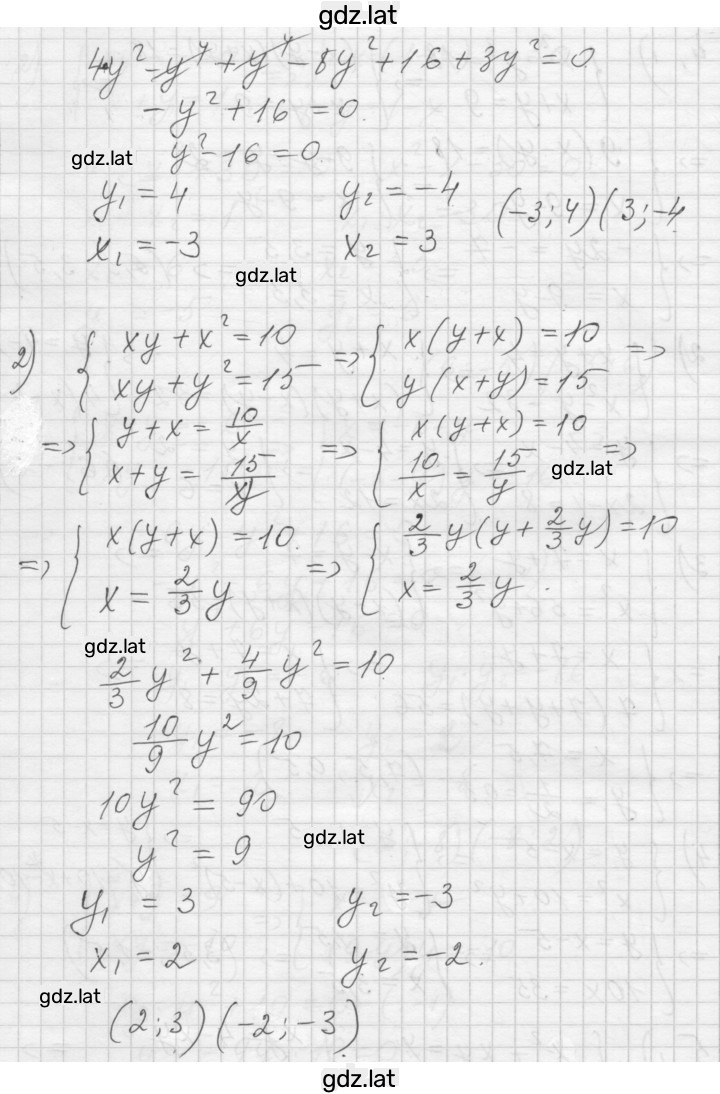 gdz.lat
4y² - y⁴ + y⁴ - 8y² + 16 + 3y² = 0
- y² + 16 = 0.
gdz.lat y² - 16 = 0
y₁ = 4 y₂ = -4 (-3; 4) (3; -4
x₁ = -3 x₂ = 3
gdz.lat
2) { xy + x² = 10 => { x(y+x) = 10 =>
xy + y² = 15 y(x+y) = 15
=> { y + x = 10/x => { x(y+x) = 10 =>
x + y = 15/y 10/x = 15/y gdz.lat
=> { x(y+x) = 10. => { 2/3 y(y + 2/3 y) = 10
x = 2/3 y x = 2/3 y .
gdz.lat
2/3 y² + 4/9 y² = 10
10/9 y² = 10
10y² = 90
y² = 9 gdz.lat
y₁ = 3 y₂ = -3
x₁ = 2 y₂ = -2.
gdz.lat
(2; 3) (-2; -3)
gdz.lat